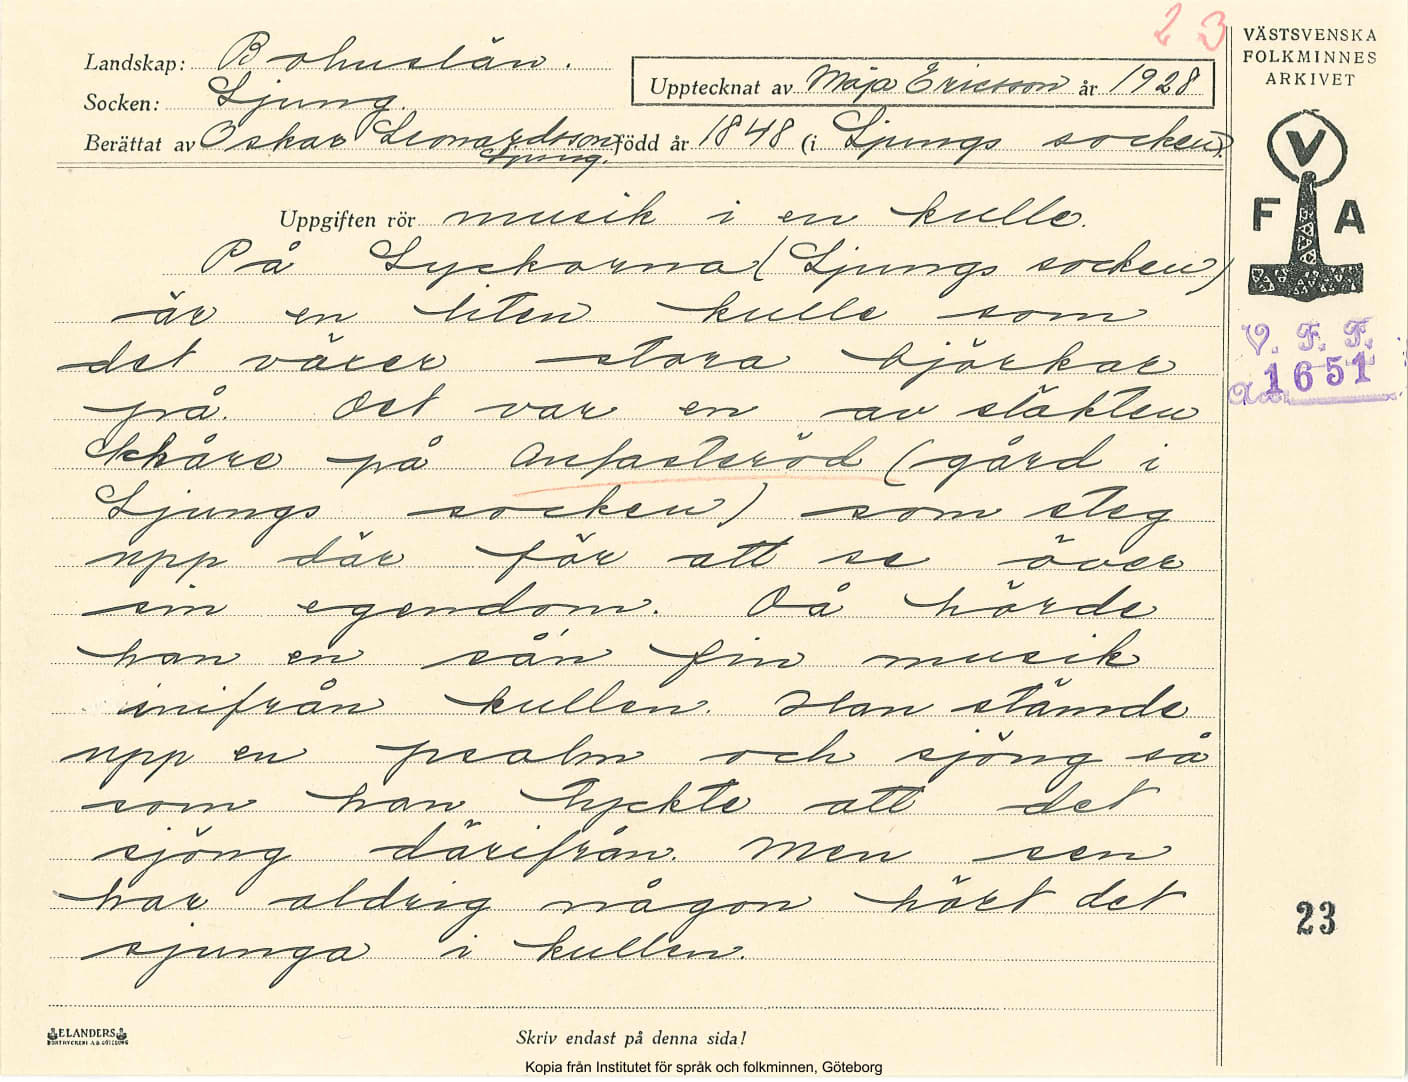 23
VÄSTSVENSKA
FOLKMINNES
ARKIVET
Landskap: Bohuslän.
Socken: Ljung.
Upptecknat av Maja Ericsson år 1928
Berättat av Oskar Leonardsson född år 1848 (i Ljungs socken).
Ljung.
VFA
Uppgiften rör musik i en kulle.
På Lyckorna (Ljungs socken)
är en liten kulle som
det växer stora björkar
på. Det var en av släkten
Skåre på Anfasteröd (gård i
Ljungs socken) som steg
upp där för att se över
sin egendom. Då hörde
han en sån fin musik
inifrån kullen. Han stämde
upp en psalm och sjöng så
som han tyckte att det
sjöng därifrån. Men sen
har aldrig någon hört det
sjunga i kullen.
V. F. F.
1651
23
ELANDERS
BOKTRYCKERI A.B. GÖTEBORG
Skriv endast på denna sida!
Kopia från Institutet för språk och folkminnen, Göteborg